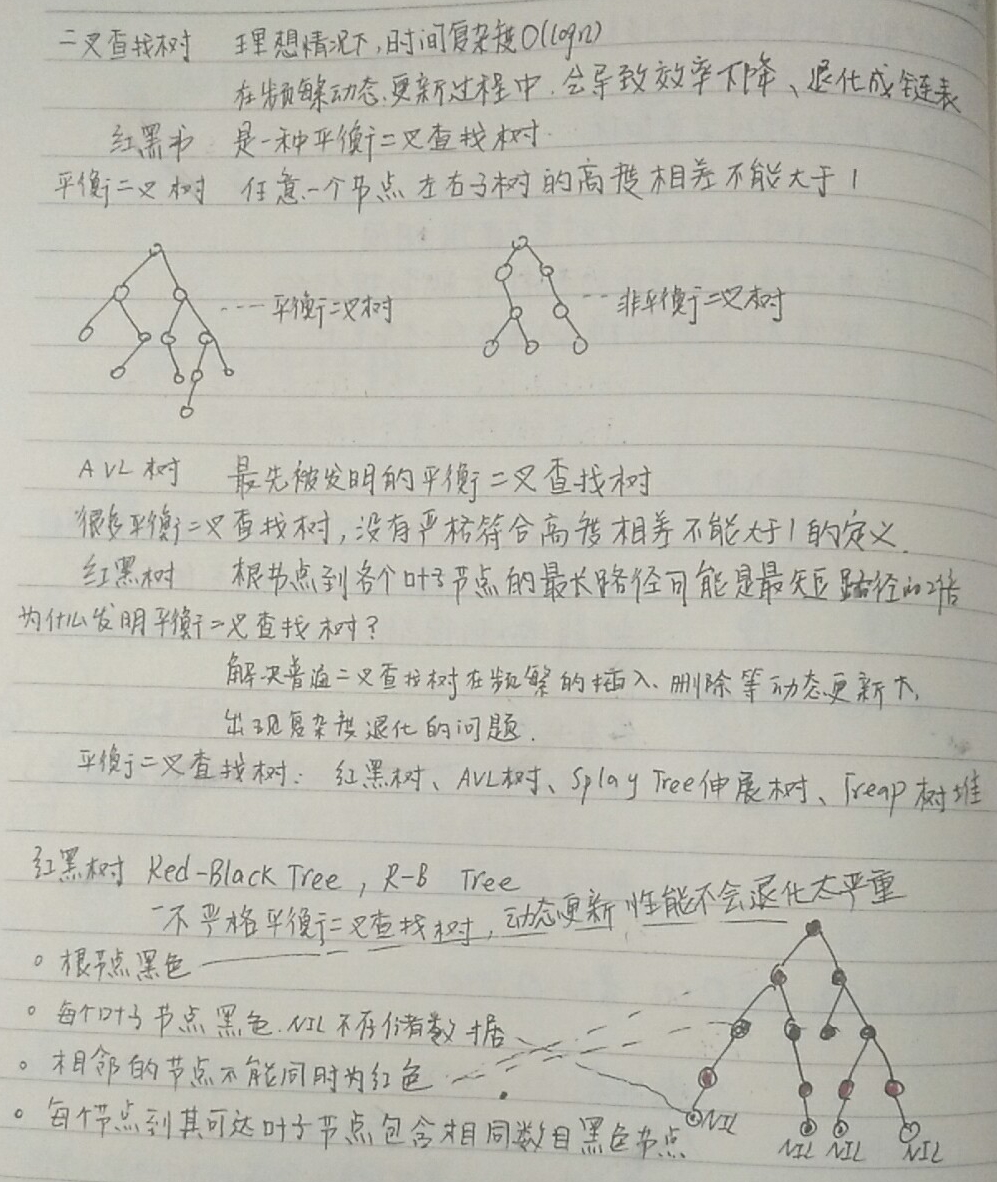 二叉查找树 理想情况下,时间复杂度O(logn)
在频繁动态更新过程中,会导致效率下降、退化成链表
红黑书 是一种平衡二叉查找树.
平衡二叉树 任意一个节点左右子树的高度相差不能大于1
---平衡二叉树
---非平衡二叉树
AVL树 最先被发明的平衡二叉查找树
很多平衡二叉查找树,没有严格符合高度相差不能大于1的定义.
红黑树 根节点到各个叶子节点的最长路径可能是最短路径的2倍
为什么发明平衡二叉查找树?
解决普通二叉查找树在频繁的插入、删除等动态更新下,
出现复杂度退化的问题.
平衡二叉查找树: 红黑树、AVL树、Splay Tree伸展树、Treap树堆
红黑树 Red-Black Tree, R-B Tree
一不严格平衡二叉查找树,动态更新性能不会退化太严重
○ 根节点黑色
○ 每个叶子节点黑色.NIL不存储数据
○ 相邻的节点不能同时为红色
○ 每个节点到其可达叶子节点包含相同数目黑色节点
NIL
NIL NIL NIL